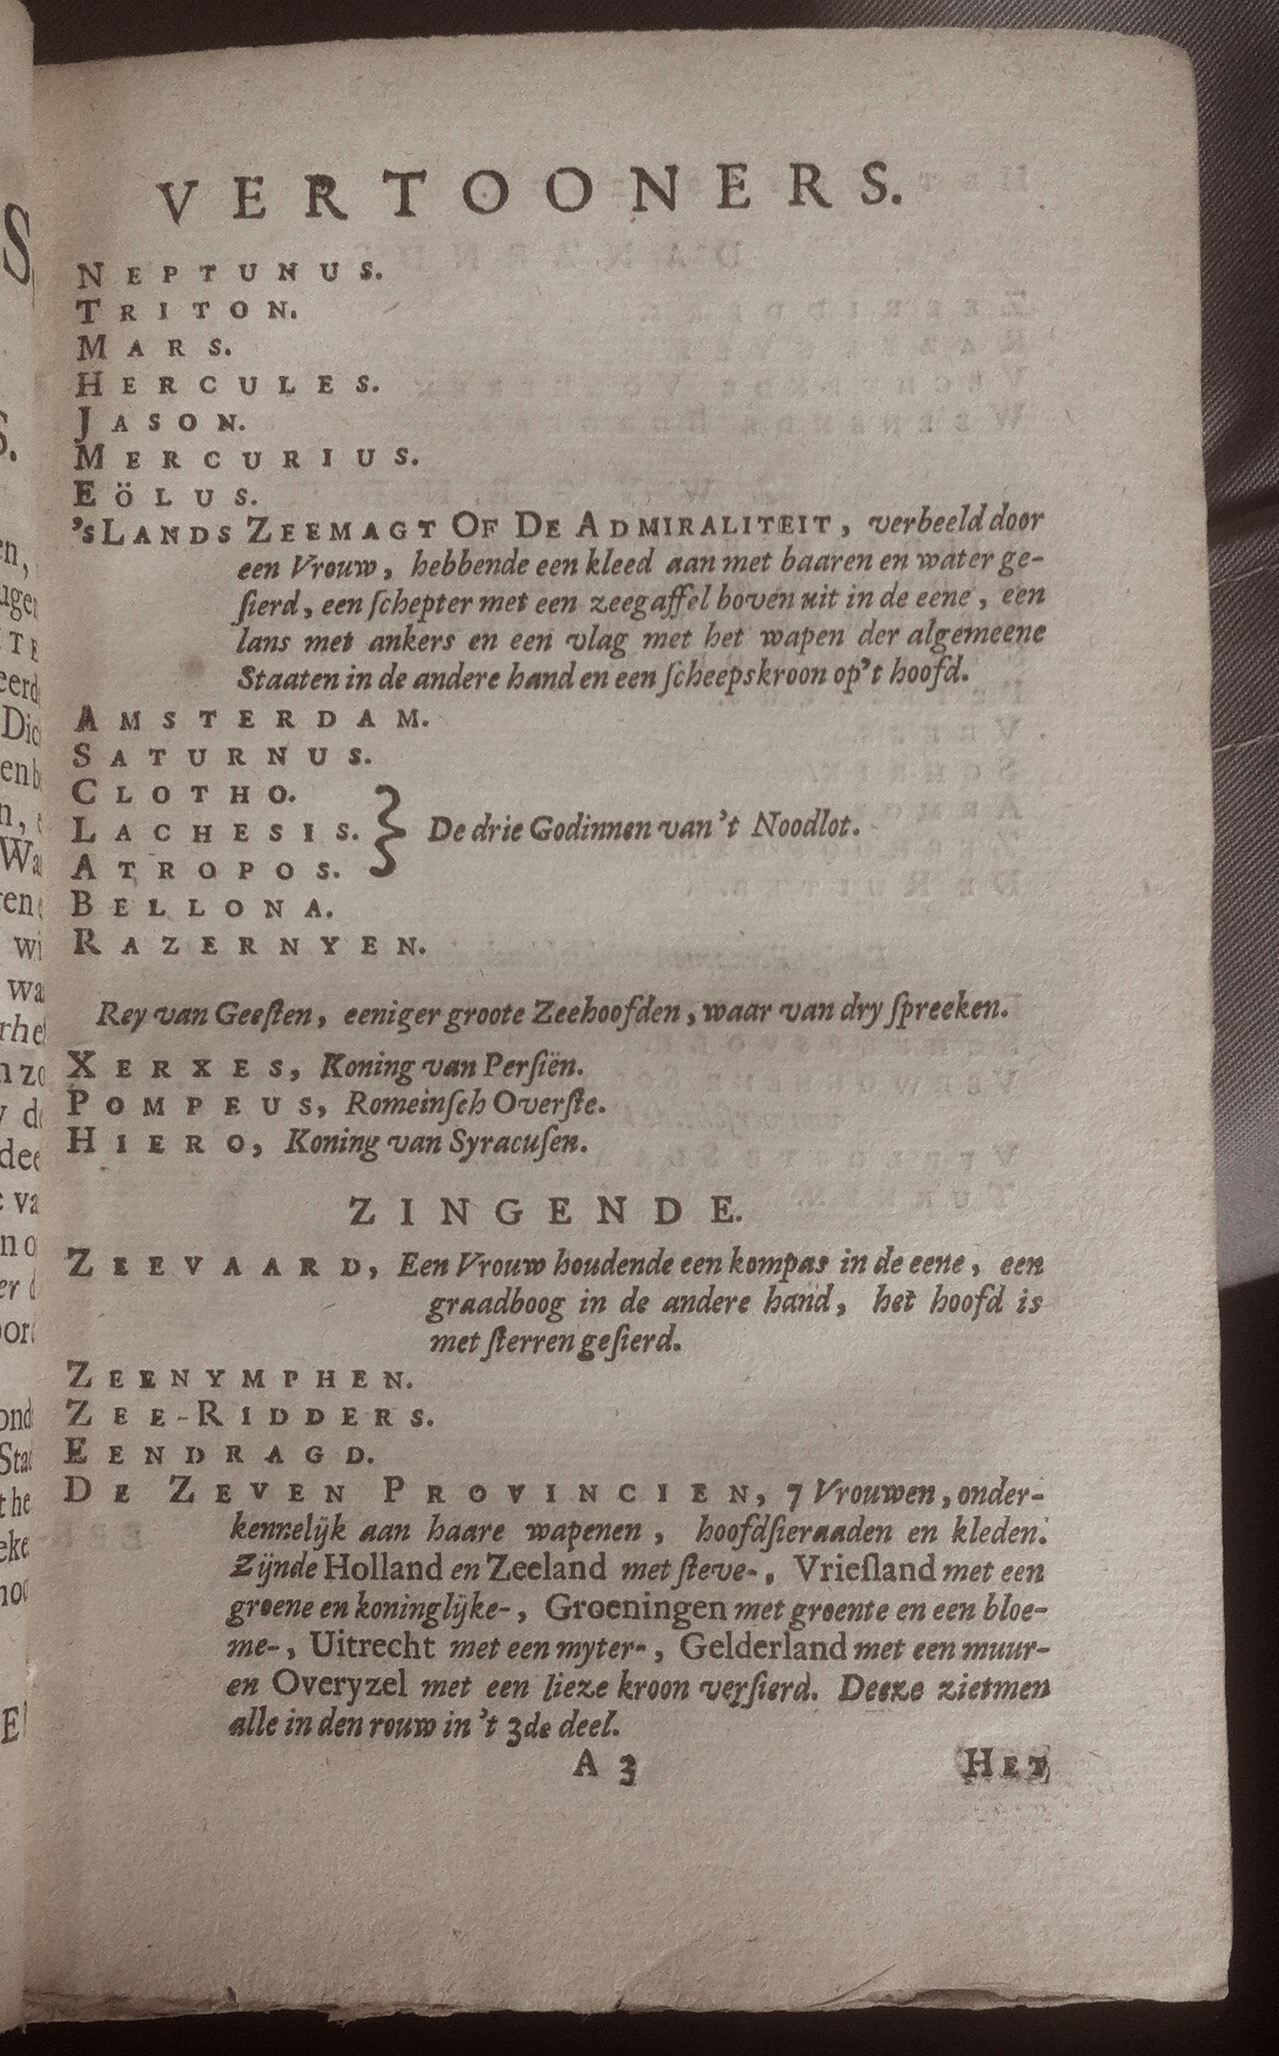 VERTOONERS.
NEPTUNUS.
TRITON.
MARS.
HERCULES.
JASON.
MERCURIUS.
EÖLUS.
'sLANDS ZEEMAGT OF DE ADMIRALITEIT, verbeeld door
een Vrouw, hebbende een kleed aan met baaren en water ge-
ſierd, een ſchepter met een zeegaffel boven uit in de eene, een
lans met ankers en een vlag met het wapen der algemeene
Staaten in de andere hand en een ſcheepskroon op't hoofd.
AMSTERDAM.
SATURNUS.
CLOTHO.
LACHESIS. } De drie Godinnen van 't Noodlot.
ATROPOS.
BELLONA.
RAZERNYEN.
Rey van Geeſten, eeniger groote Zeehoofden, waar van dry ſpreeken.
XERXES, Koning van Perſiën.
POMPEUS, Romeinſch Overſte.
HIERO, Koning van Syracuſen.
ZINGENDE.
ZEEVAARD, Een Vrouw houdende een kompas in de eene, een
graadboog in de andere hand, het hoofd is
met ſterren geſierd.
ZEENYMPHEN.
ZEE-RIDDERS.
EENDRAGD.
DE ZEVEN PROVINCIEN, 7 Vrouwen, onder-
kennelijk aan haare wapenen, hoofdſieraaden en kleden.
Zijnde Holland en Zeeland met ſteve-, Vrieſland met een
groene en koninglijke-, Groeningen met groente en een bloe-
me-, Uitrecht met een myter-, Gelderland met een muur-
en Overyzel met een lieze kroon verſierd. Deeze zietmen
alle in den rouw in 't 3de deel.
A 3
HET